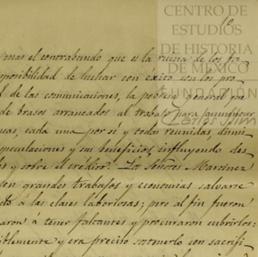 CENTRO DE
ESTUDIOS
DE HISTORIA
DE MÉXICO
FUNDACIÓN
Carlos Slim
mas el contrabando que es la ruina de los
sponibilidad de luchar con exito con los pro
d de las comunicaciones, la pobreza general
de brazos arrancados al trabajo para
cada una por si y todas reunidas
especulaciones y sus beneficios influyendo des
y sobre el crédito. Los Señores Martinez
con grandes trabajos y economias salvarse
á las clases laboriosas; pero al fin fueron
aron á tener faltantes y procuraron cubrirlos:
iblemente y era preciso sostenerlo con sacrifi